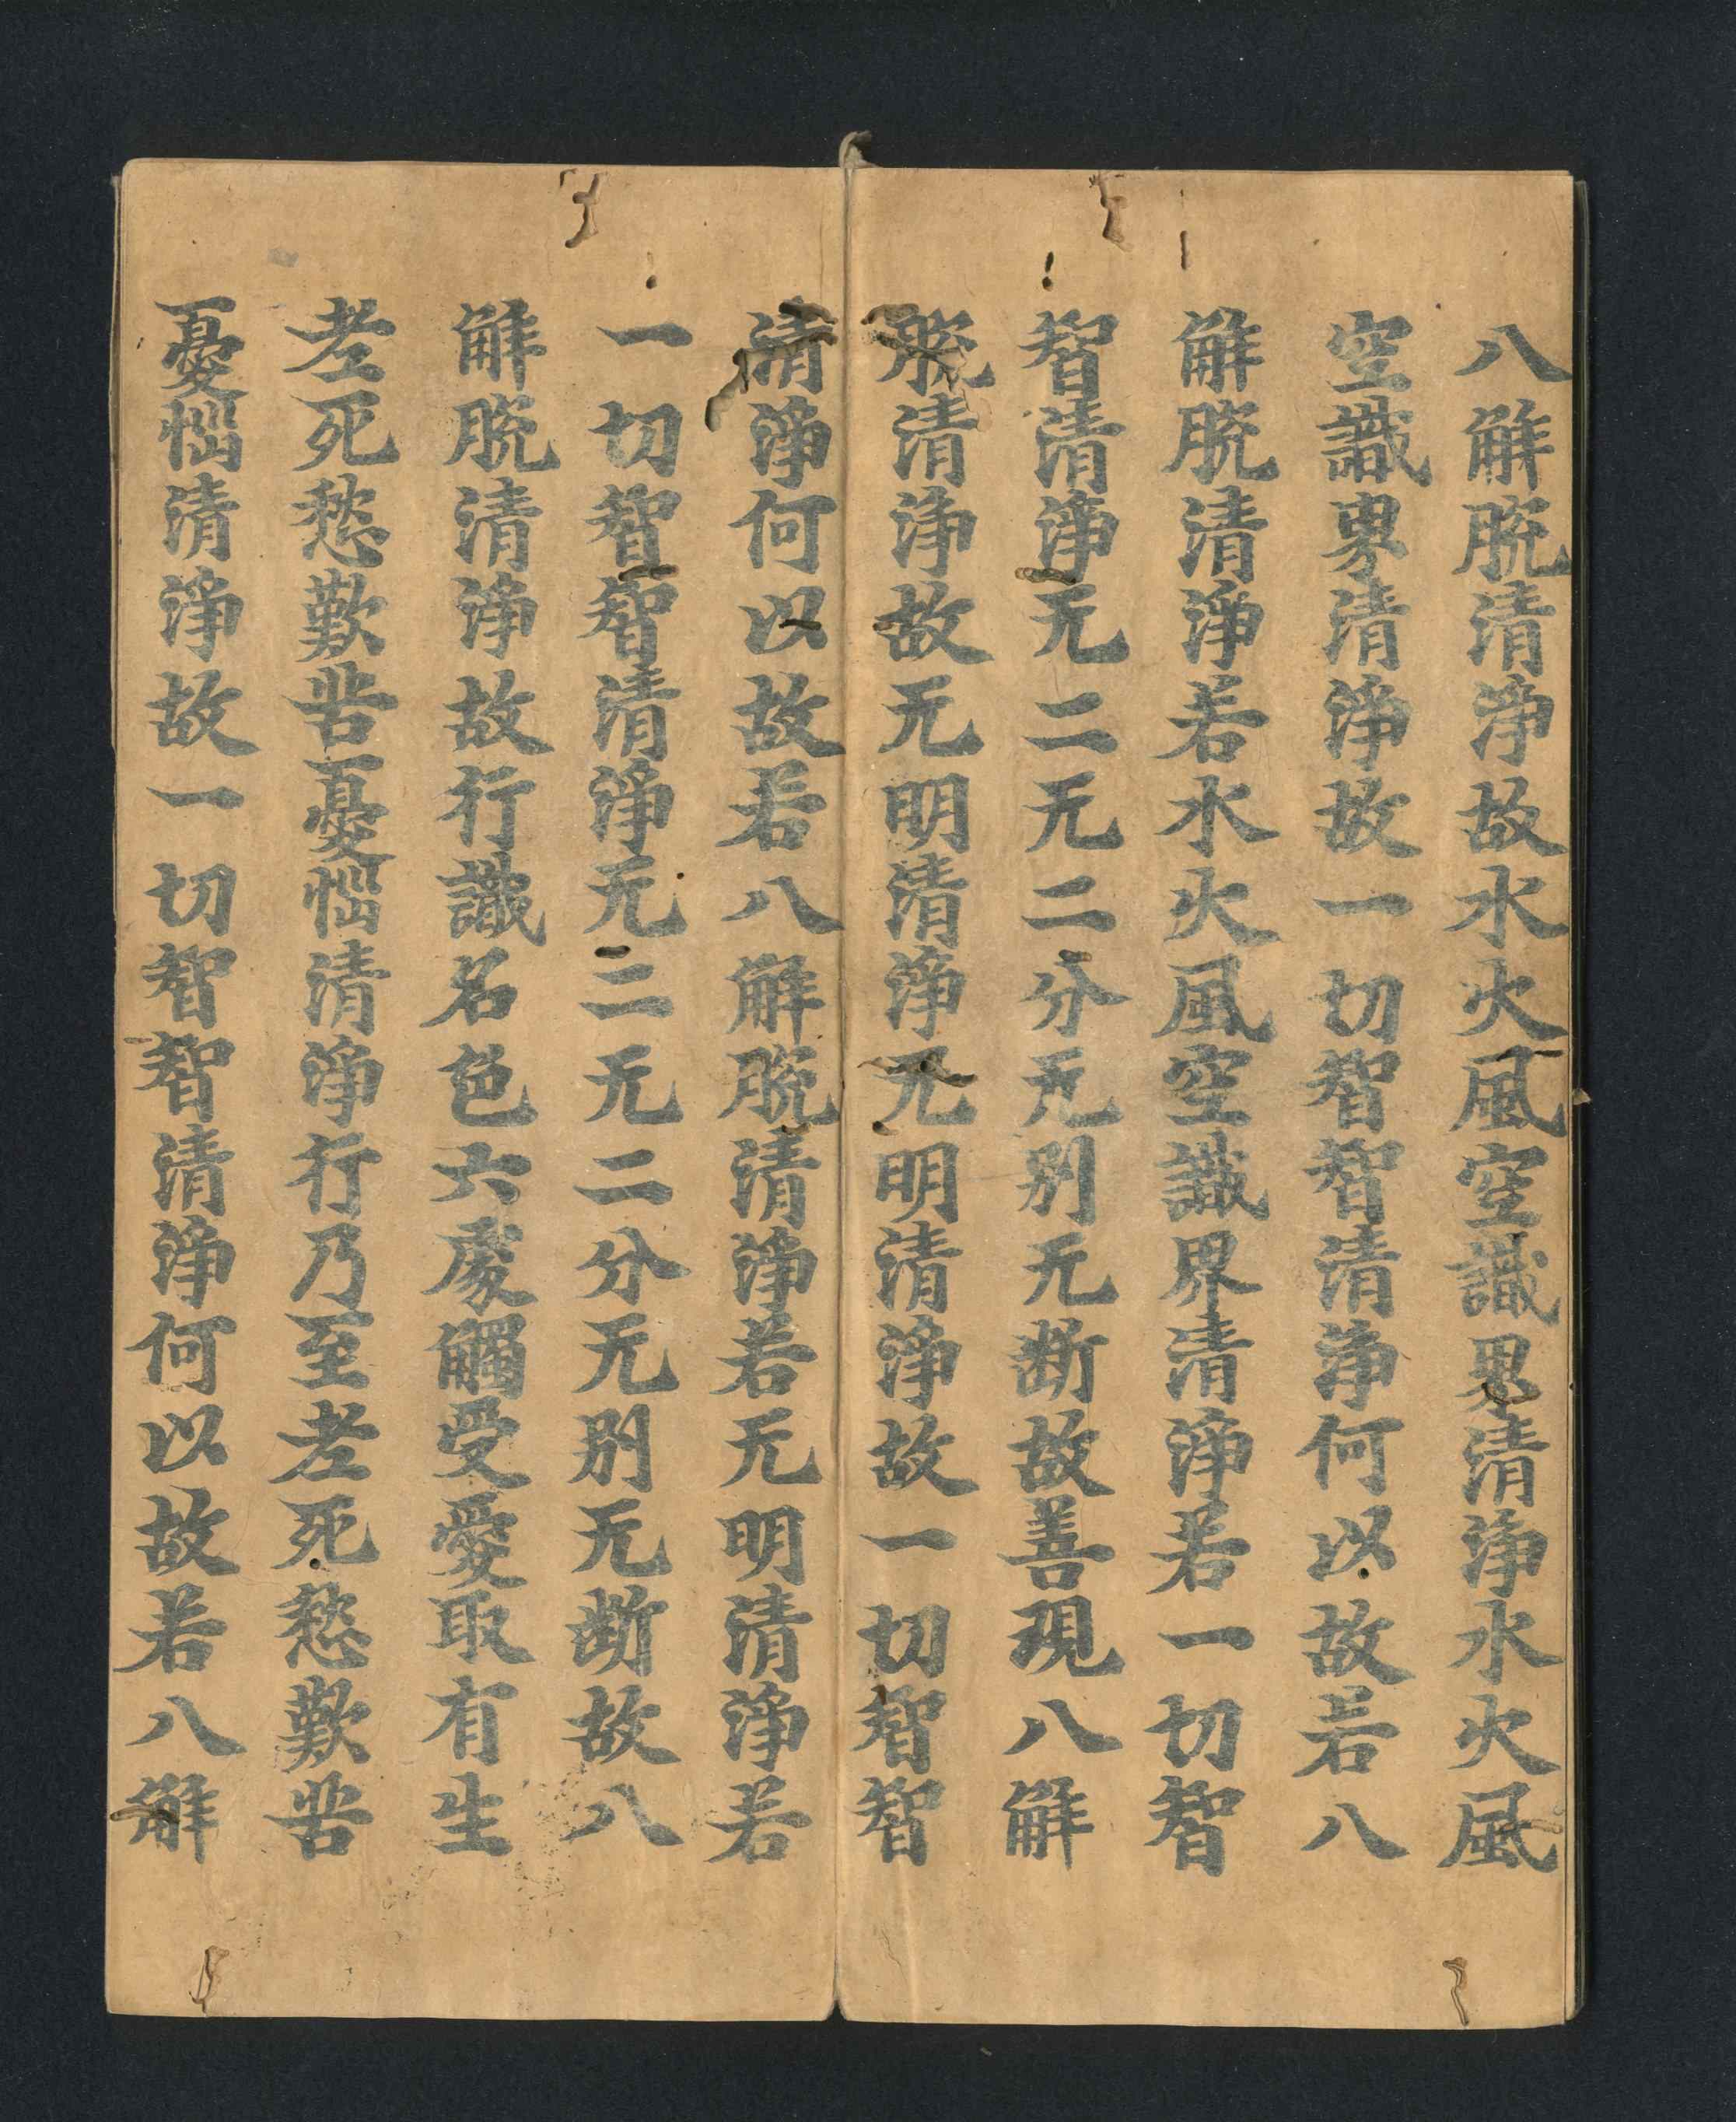 八解脱清淨故水火風空識界清淨水火風
空識界清淨故一切智智清淨何以故若八
解脱清淨若水火風空識界清淨若一切智
智清淨无二无二分无別无断故善現八解
脱清淨故无明清淨无明清淨故一切智智
清淨何以故若八解脱清淨若无明清淨若
一切智智清淨无二无二分无別无断故八
解脱清淨故行識名色六處觸受愛取有生
老死愁歎苦憂惱清淨行乃至老死愁歎苦
憂惱清淨故一切智智清淨何以故若八解